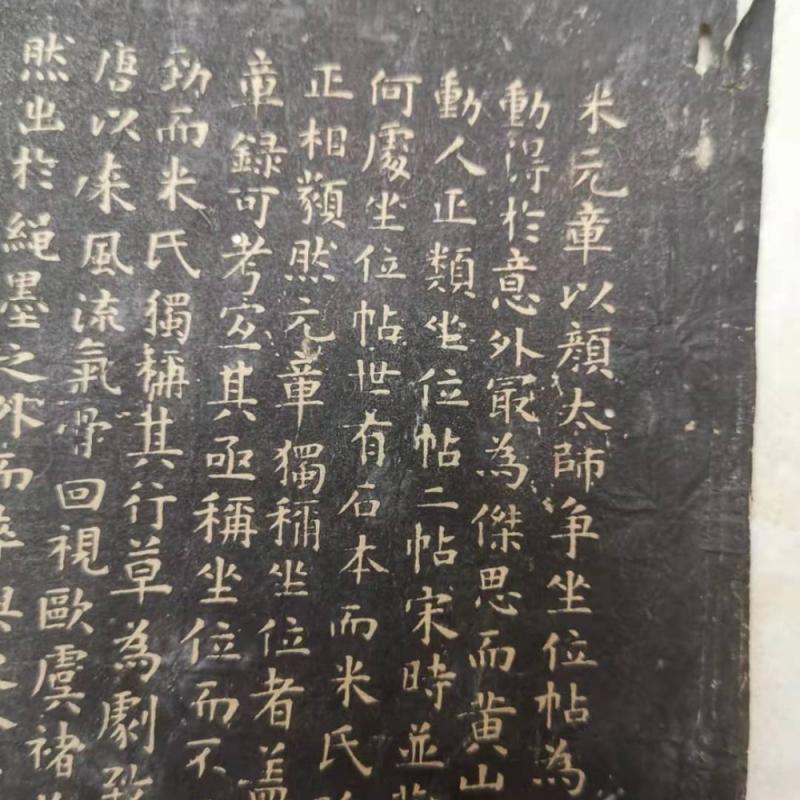 米元章以顏太師爭坐位帖為
動得於意外冣為傑思而黃山
動人正類坐位帖二帖宋時並
何處坐位帖世有石本而米氏
正相類然元章獨稱坐位者盖
章錄可考定其亟稱坐位而不
勁而米氏獨稱其行草為劇致
唐以来風流氣骨回視歐虞褚
然出於繩墨之外而卒與